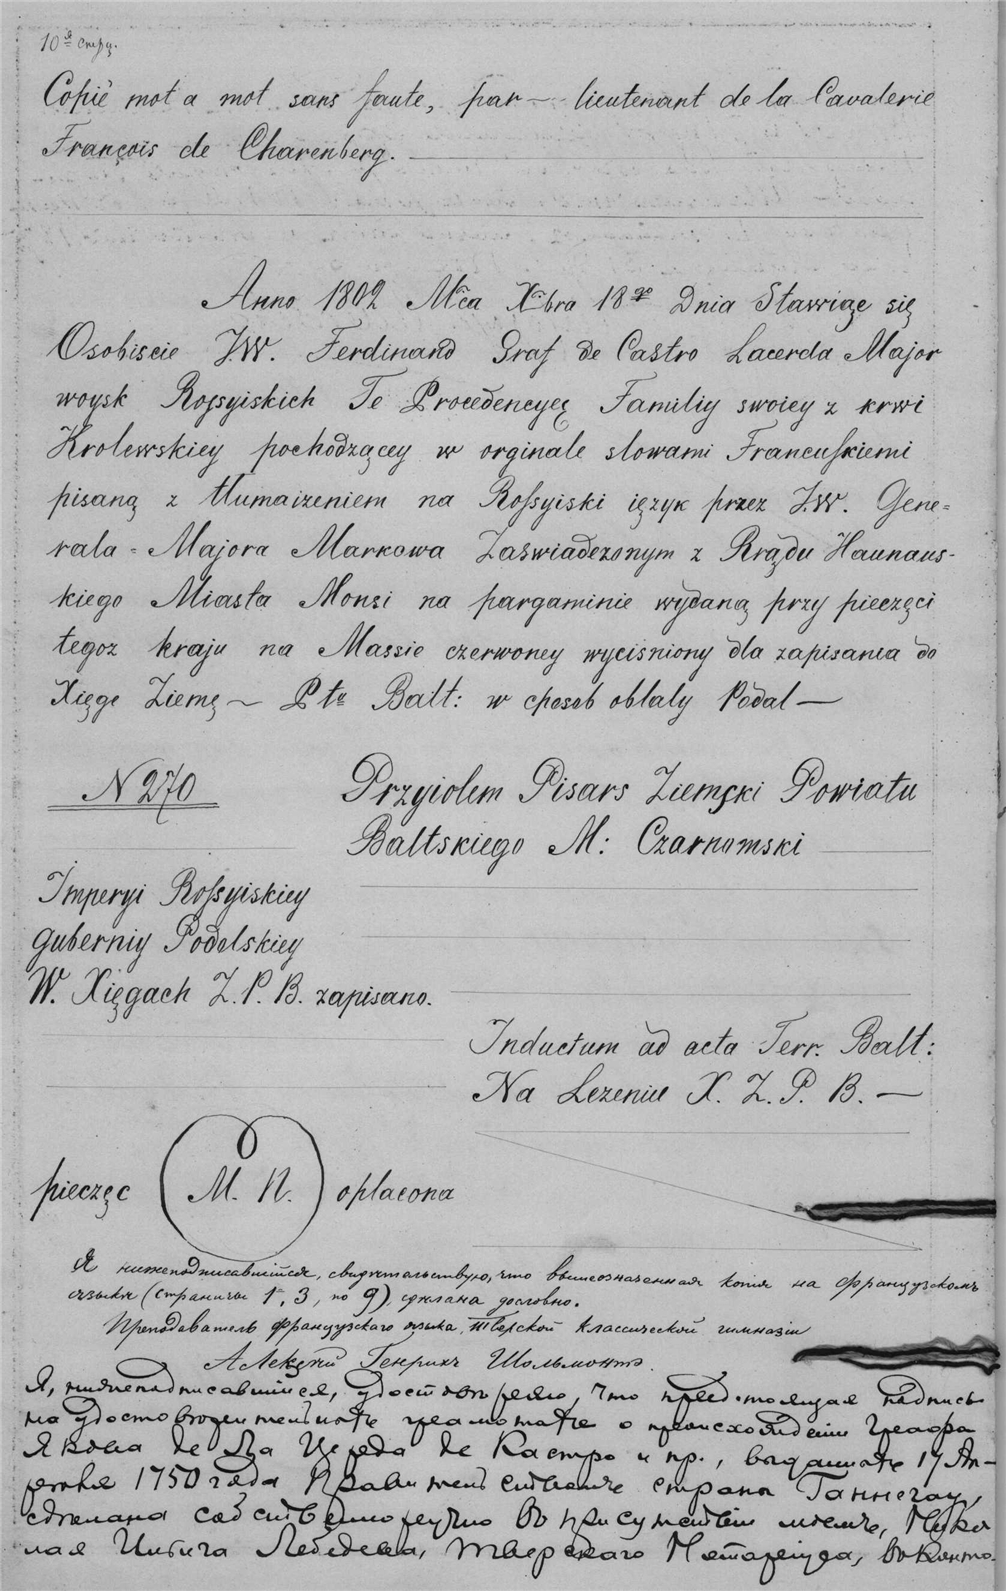 10я стрц.
Copié mot a mot sans faute, par — lieutenant de la Cavalerie
François de Charenberg.
Anno 1802 Mca Xbra 18go Dnia Stawiąc się
Osobiscie JW. Ferdinand Graf de Castro Lacerda Major
woysk Rossyiskich Te Procedencyę Familiy swoiey z krwi
Krolewskiey pochodzącey w orginale slowami Francuskiemi
pisaną z tlumaizeniem na Rossyiski ięzyk przez J.W. Gene-
rala-Majora Markowa Zaswiadezonym z Rrądu Haunaus-
kiego Miasta Monsi na pargaminie wydaną przy pieczęci
tegoz kraju na Massie czerwoney wycisniony dla zapisania do
Xięge Ziemę — Ptu Balt: w sposob oblaly Podal —
N 270
Przyiolem Pisars Ziemski Powiatu
Baltskiego M: Czarnomski
Imperyi Rossyiskiey
guberniy Podolskiey
W. Xięgach Z. P. B. zapisano.
Inductum ad acta Terr. Balt:
Na Lezeniu X. Z. P. B. —
pieczęc M. П. oplacona
Я нижеподписавшійся, свидѣтельствую, что вышеозначенная копія на французскомъ
языкѣ (страницы 1, 3, по 9) сдѣлана дословно.
Преподаватель французскаго языка Тверской классической гимназіи
Алексѣй Генрихъ Шольмонтъ.
Я, нижеподписавшійся, удостовѣряю, что предстоящая подпись
на удостовѣрительной грамотѣ о происхожденіи Графа
Якова де Ла Церда де Кастро и пр., выданной 17 Ап-
рѣля 1750 года Правительствомъ страны Ганнегау,
сдѣлана собственноручно въ присутствіи моемъ, Нико
лая Лебедева, Тверскаго Нотаріуса, въ конто-